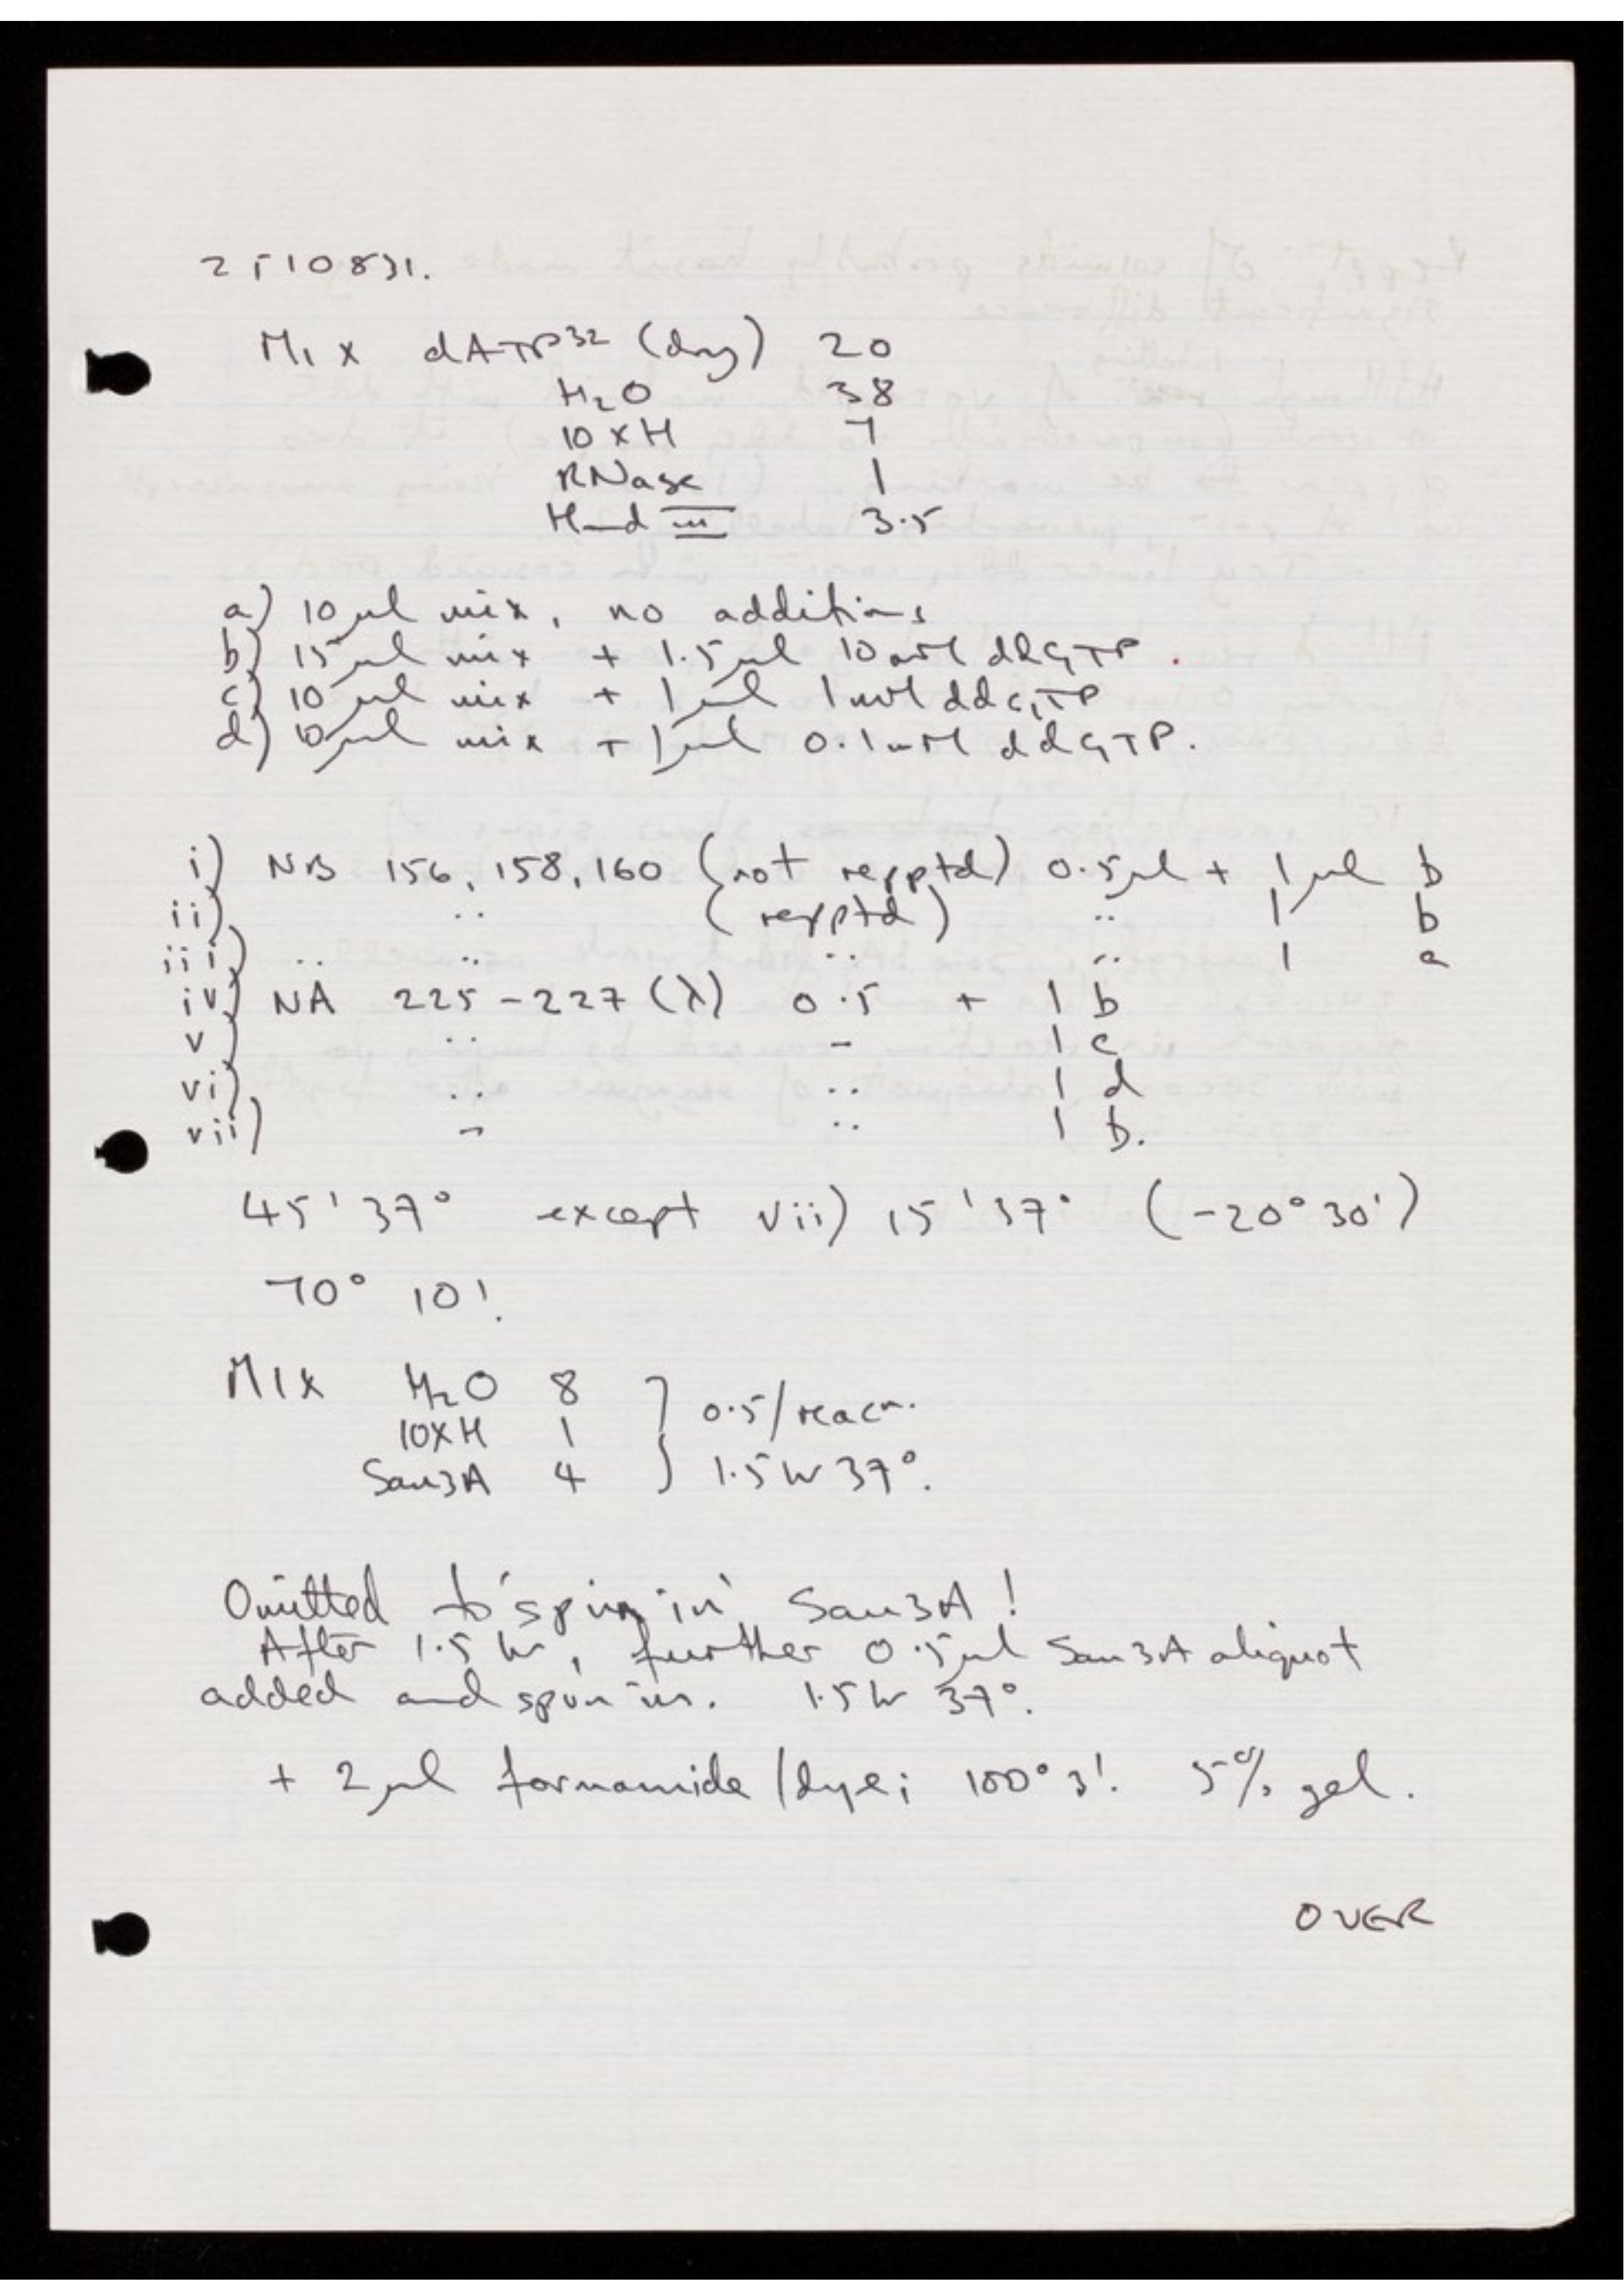 2510831.
Mix dATP³² (dry) 20
H₂O 38
10 x H 7
RNase 1
Hind III 3.5
a) 10 µl mix, no additions
b) 15 µl mix + 1.5 µl 10 mM ddGTP.
c) 10 µl mix + 1 µl 1 mM ddGTP
d) 10 µl mix + 1 µl 0.1 mM ddGTP.
i) NB 156, 158, 160 (not repptd) 0.5 µl + 1 µl b
ii) .. (repptd) .. 1 b
iii) .. .. .. .. 1 a
iv) NA 225-227 (λ) 0.5 + 1 b
v) .. - 1 c
vi) .. .. 1 d
vii) - .. 1 b.
45' 37° except vii) 15' 37° (-20° 30')
70° 10'.
MIX H₂O 8
10XH 1
Sau3A 4
} 0.5/reacn.
1.5 hr 37°.
Omitted to 'spin in' Sau3A!
After 1.5 hr, further 0.5 µl Sau3A aliquot
added and spun in. 1.5 hr 37°.
+ 2 µl formamide/dye; 100° 3'. 5% gel.
OVER